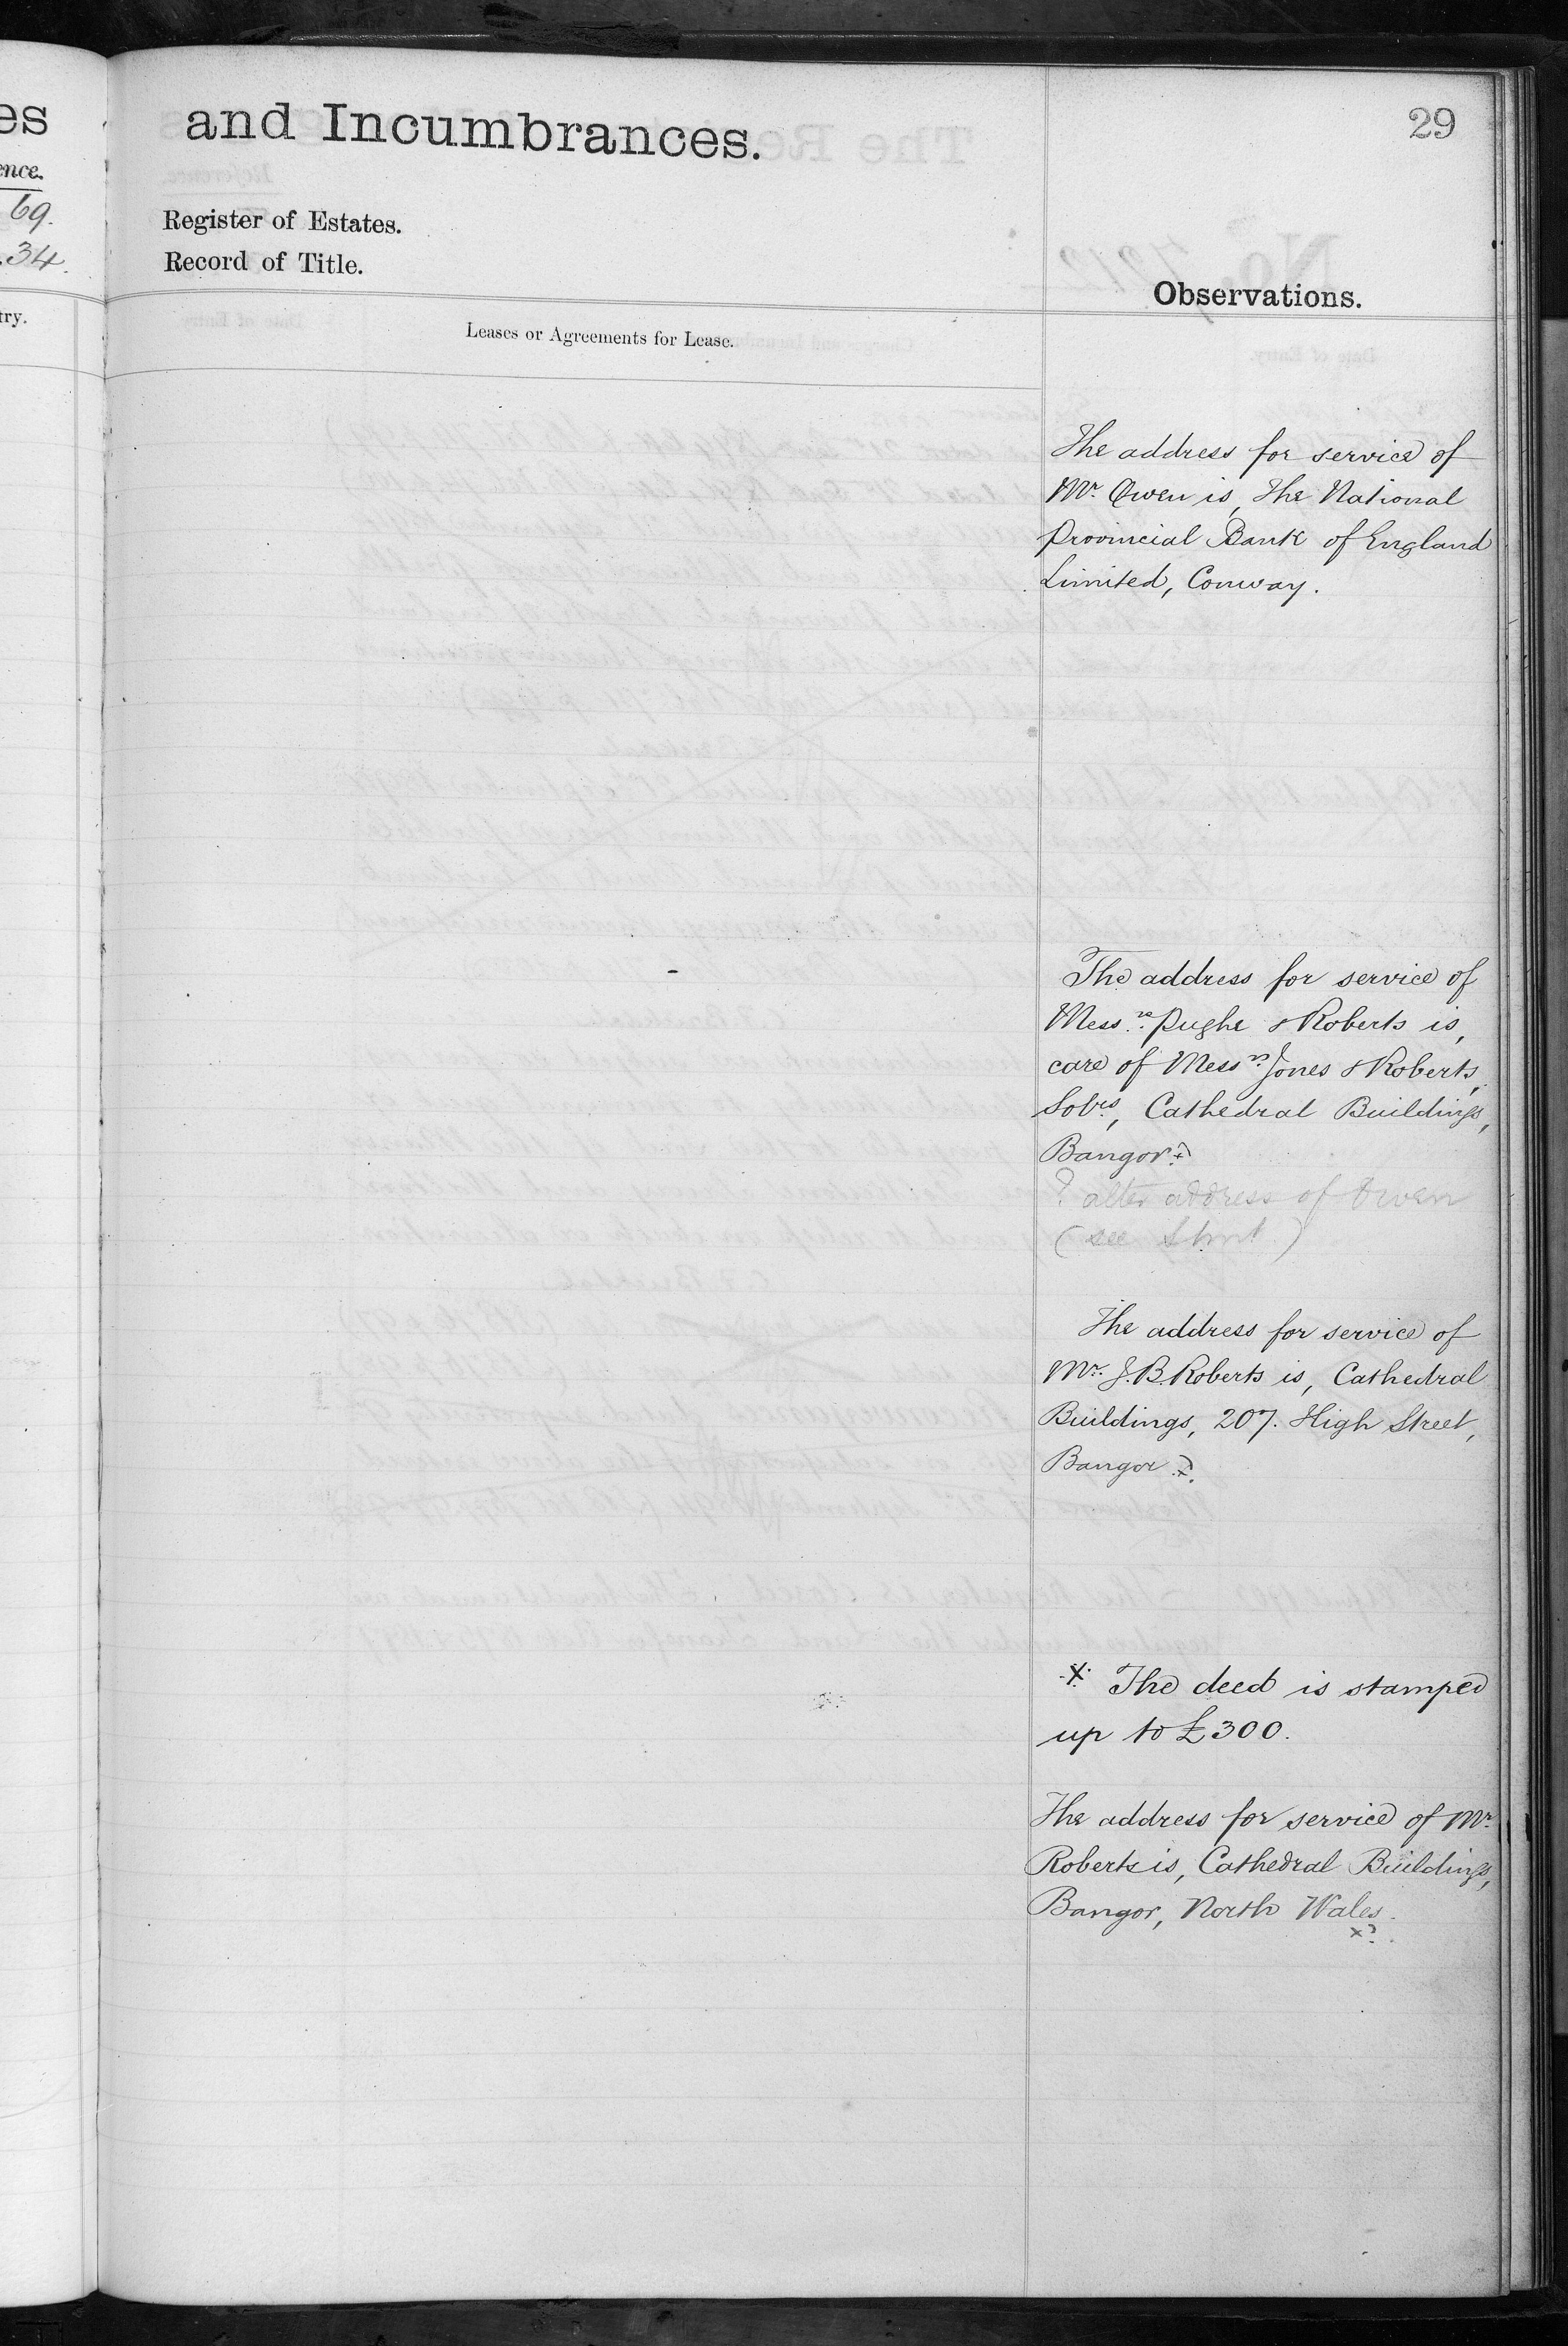 es
and Incumbrances.
29
ence.
69.
34.
Register of Estates.
Record of Title.
Observations.
try.
Leases or Agreements for Lease.
The address for service of
Mr. Owen is, The National
Provincial Bank of England
Limited, Conway.
The address for service of
Messrs. Pughe & Roberts is,
care of Messrs. Jones & Roberts,
Solrs, Cathedral Buildings,
Bangor.
? alter address of Owen
(see
The address for service of
Mr. J. B. Roberts is, Cathedral
Buildings, 207. High Street,
Bangor
x The deed is stamped
up to £300.
The address for service of Mr.
Roberts is, Cathedral Buildings,
Bangor, North Wales.
x?